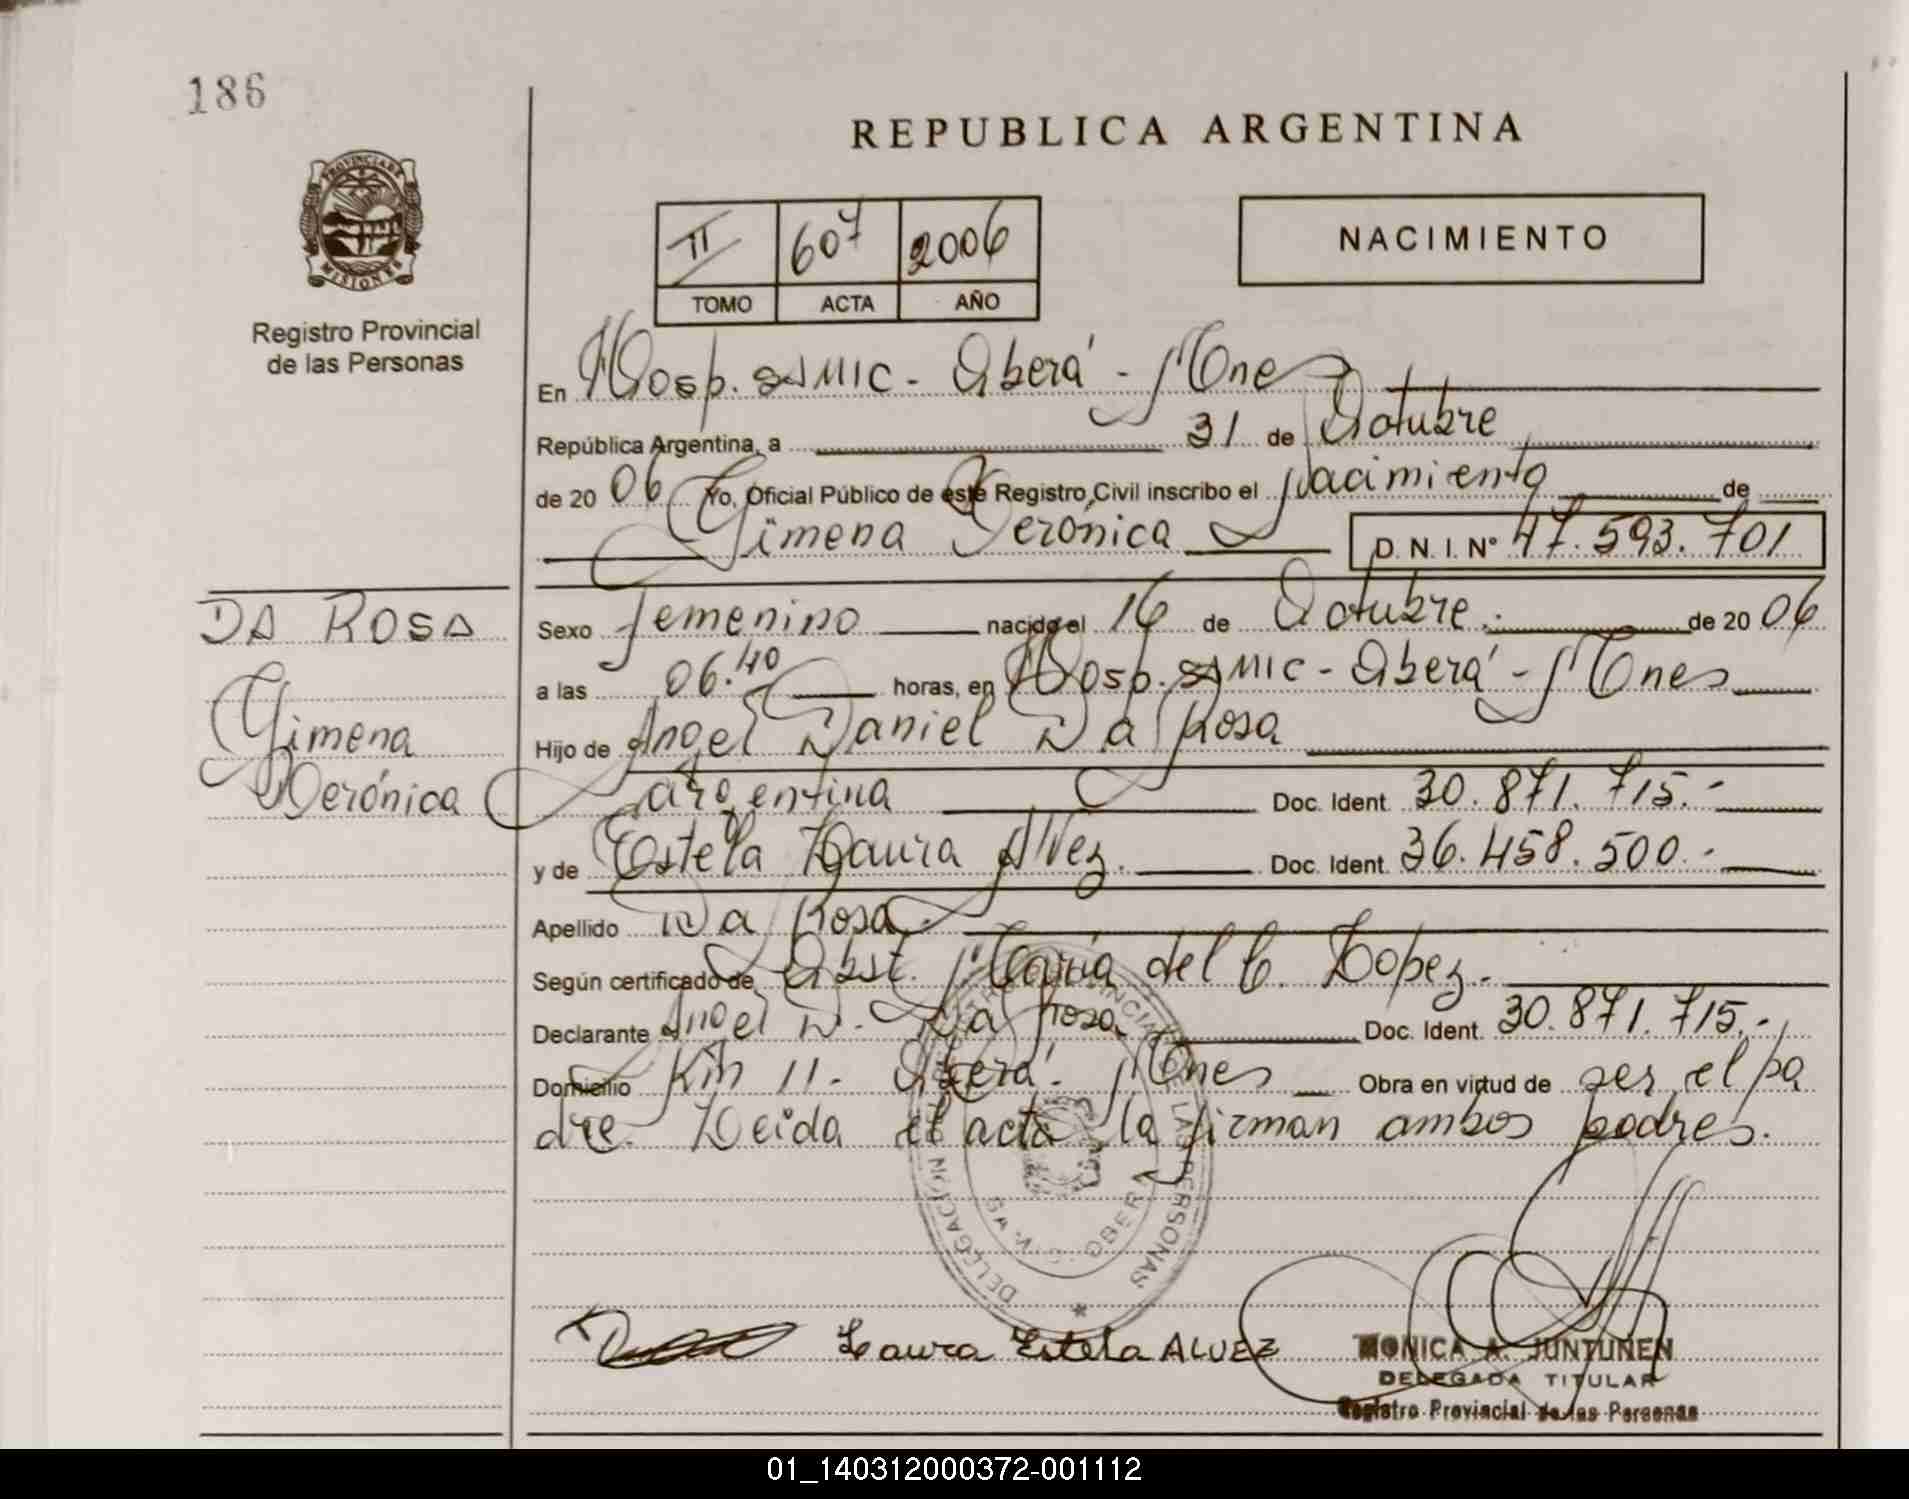 186
REPUBLICA ARGENTINA
PROVINCIA DE
MISIONES
Registro Provincial
de las Personas
II 607 2006
TOMO ACTA AÑO
NACIMIENTO
En Hosp. SAMIC - Oberá - Mnes
República Argentina, a 31 de Octubre
de 20 06 Yo, Oficial Público de este Registro Civil inscribo el Nacimiento de
Gimena Verónica D.N.I. Nº 47.593.701
DA ROSA
Gimena
Verónica
Sexo femenino nacido el 16 de Octubre. de 20 06
a las 06.40 horas, en Hosp. SAMIC - Oberá - Mnes
Hijo de Angel Daniel Da Rosa
argentina Doc. Ident. 30.871.715.-
y de Estela Laura Alvez. Doc. Ident. 36.458.500.-
Apellido Da Rosa.
Según certificado de Obst. María del C. Lopez.
Declarante Angel D. Da Rosa Doc. Ident. 30.871.715.-
Domicilio Km 11. Oberá. Mnes Obra en virtud de ser el pa
dre. Leida el acta la firman ambos padres.
REGISTRO PROVINCIAL DE LAS PERSONAS
DELEGACION
OBERA
Laura Estela ALVEZ
MONICA A. JUNTUNEN
DELEGADA TITULAR
Registro Provincial de las Personas
01_140312000372-001112